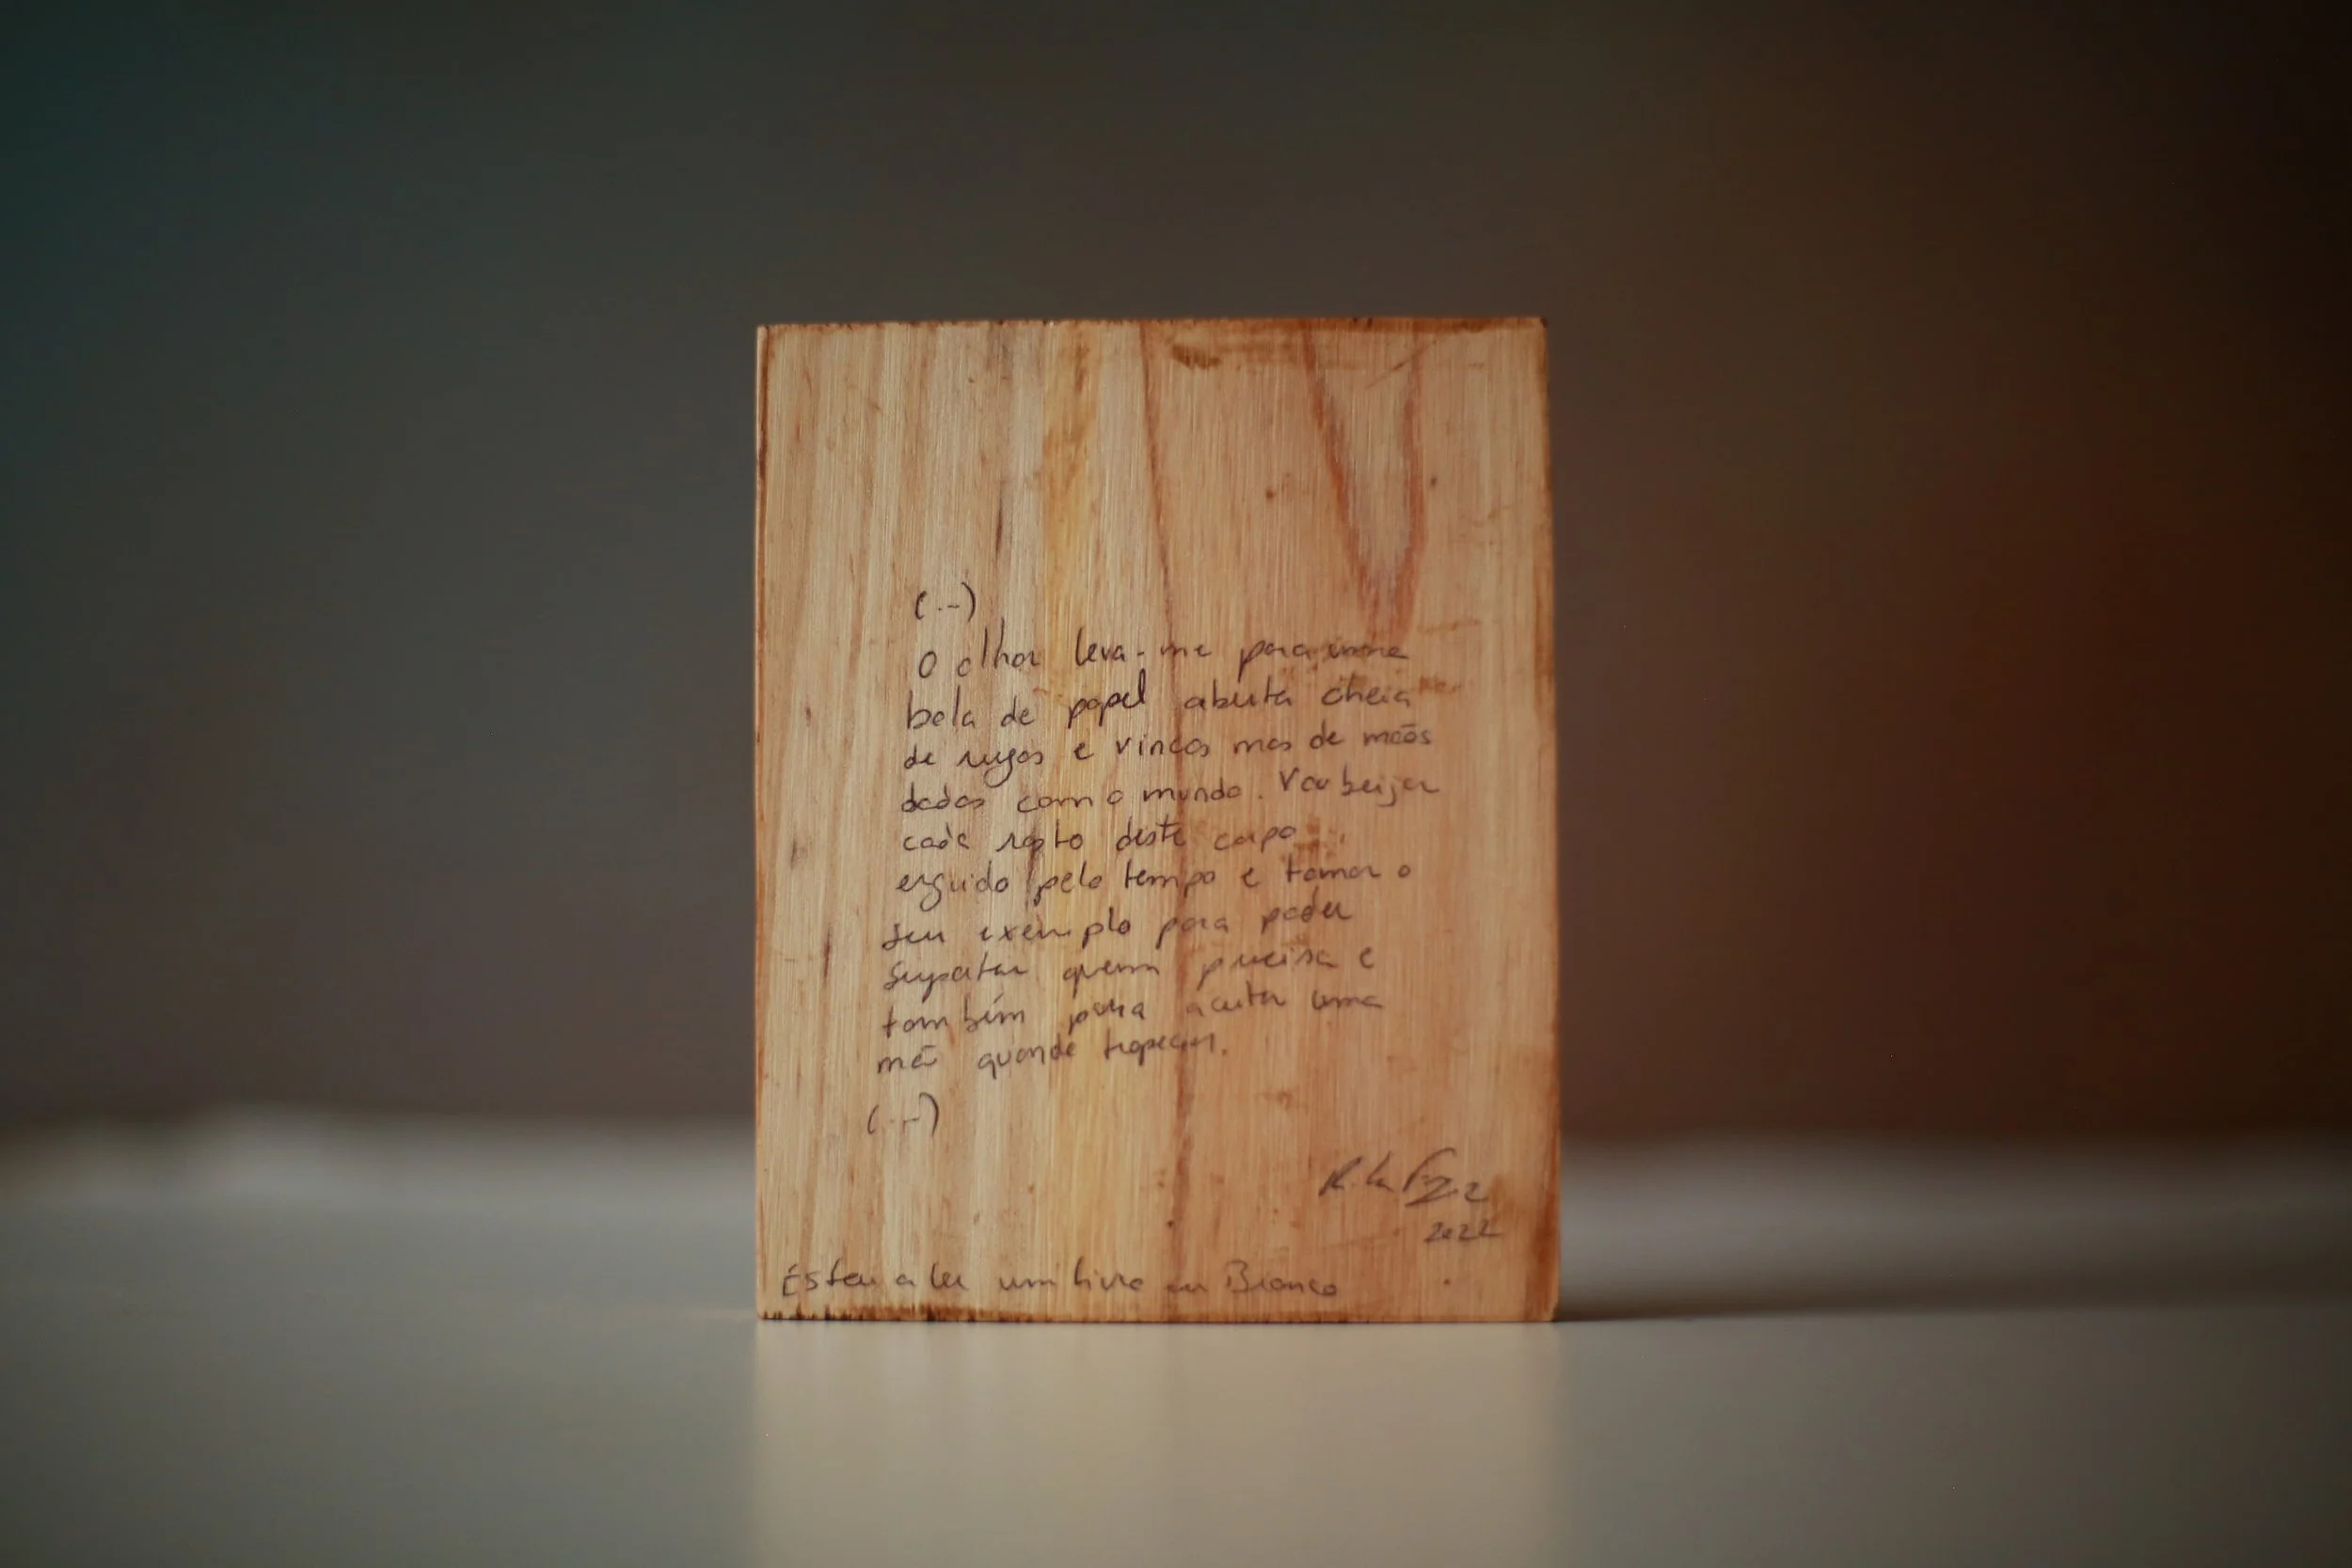 (...)
O olhar leva-me para uma
bola de papel aberta cheia
de rugas e vincos mas de mãos
dadas com o mundo. Vou beijar
cada rosto deste corpo
erguido pelo tempo e tomar o
seu exemplo para poder
suportar quem precisa e
também para aceitar uma
mão quando tropeçar.
(...)
2022
Estou a ler um livro em Branco